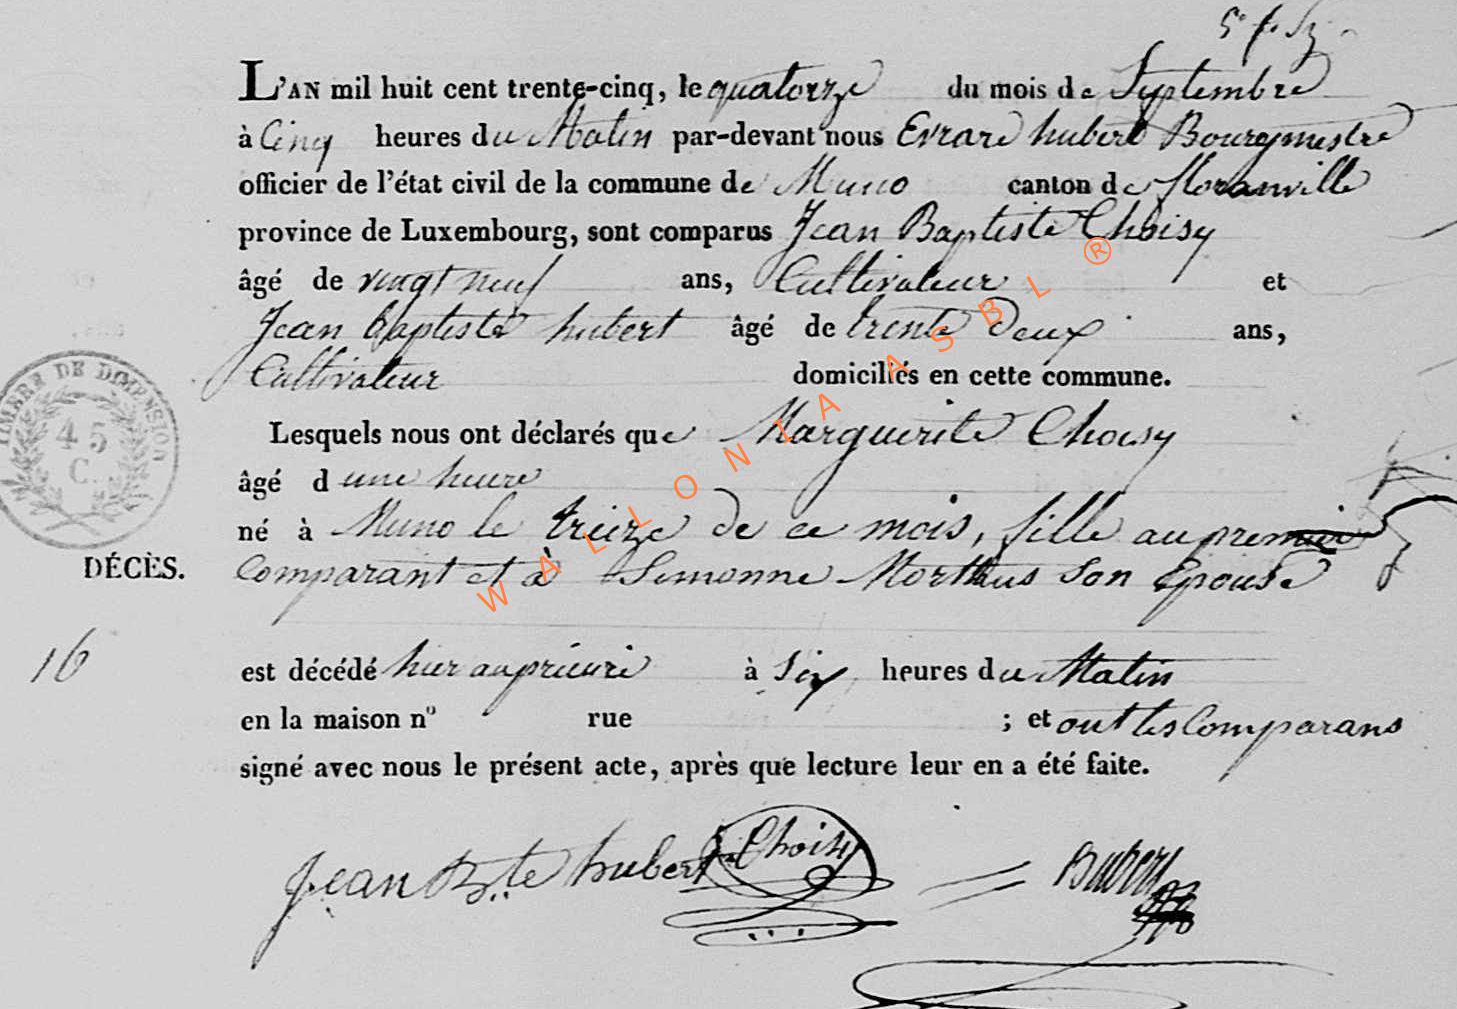 L'AN mil huit cent trente-cinq, le quatorze du mois de Septembre
à Cinq heures du Matin par-devant nous Evrard hubert Bourgmestre
officier de l'état civil de la commune de Muno canton de floranville
province de Luxembourg, sont comparus Jean Baptiste Choisy
âgé de vingt neuf ans, Cultivateur et
Jean baptiste hubert âgé de trente deux ans,
Cultivateur domiciliés en cette commune.
TIMBRE DE DIMENSION
45
C.
Lesquels nous ont déclarés que Marguerite Choisy
âgé d une heure
né à Muno le treize de ce mois, fille au premier
DÉCÈS.
Comparant et à Simonne Morthus son Epouse
16
est décédé hier à Six heures du Matin
en la maison nº rue ; et ont les Comparans
signé avec nous le présent acte, après que lecture leur en a été faite.
Jean Bte hubert Choisy hubert
WALLONIA ASBL ®